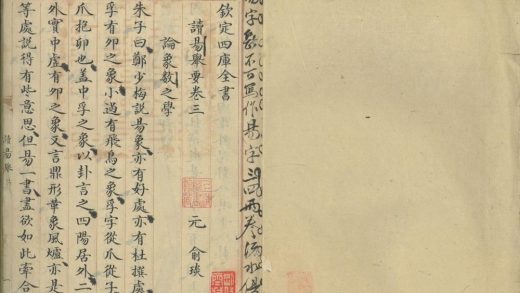 字 不可寫作易字
欽定四庫全書
讀易舉要卷三
元 俞琰
論象數之學
朱子曰鄭少梅說易象亦有好處亦有杜撰處
孚有卵之象小過有飛鳥之象孚字從爪從子
爪抱卵也蓋中孚之象以卦言之四陽居外二
外實中虛有卵之象又言鼎形革象風爐亦是
等處說得有些意思但易一書盡欲如此牽合
讀易舉